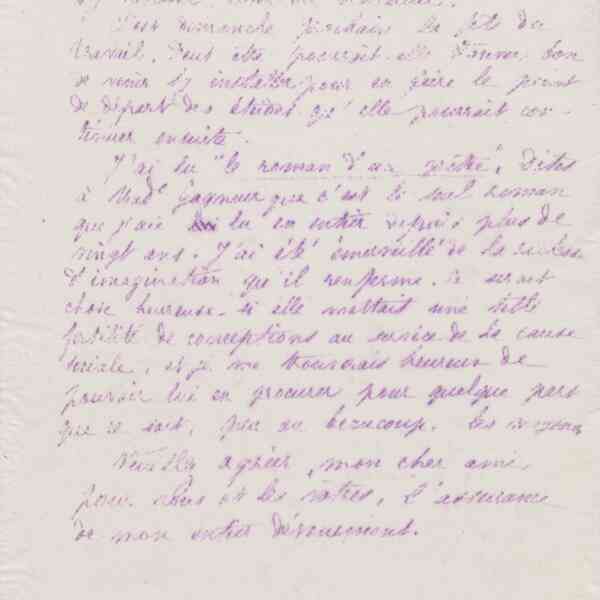 C'est dimanche prochain la fête du
travail. Peut être pourrait-elle trouver bon
de venir s'y installer pour en faire le point
de départ des études qu'elle pourrait con-
tinuer ensuite.
J'ai lu "le roman d'un prêtre". Dites
à Mad.e Gagneur que c'est le seul roman
que j'aie lu en entier depuis plus de
vingt ans. J'ai été émerveillé de la richesse
d'imagination qu'il renferme. Ce serait
chose heureuse si elle mettait une telle
fertilité de conceptions au service de la cause
sociale, et je me trouverais heureux de
pouvoir lui en procurer pour quelque part
que ce soit, peu ou beaucoup, les moyens.
Veuillez agréer, mon cher ami,
pour vous et les vôtres, l'assurance
de mon entier dévouement.